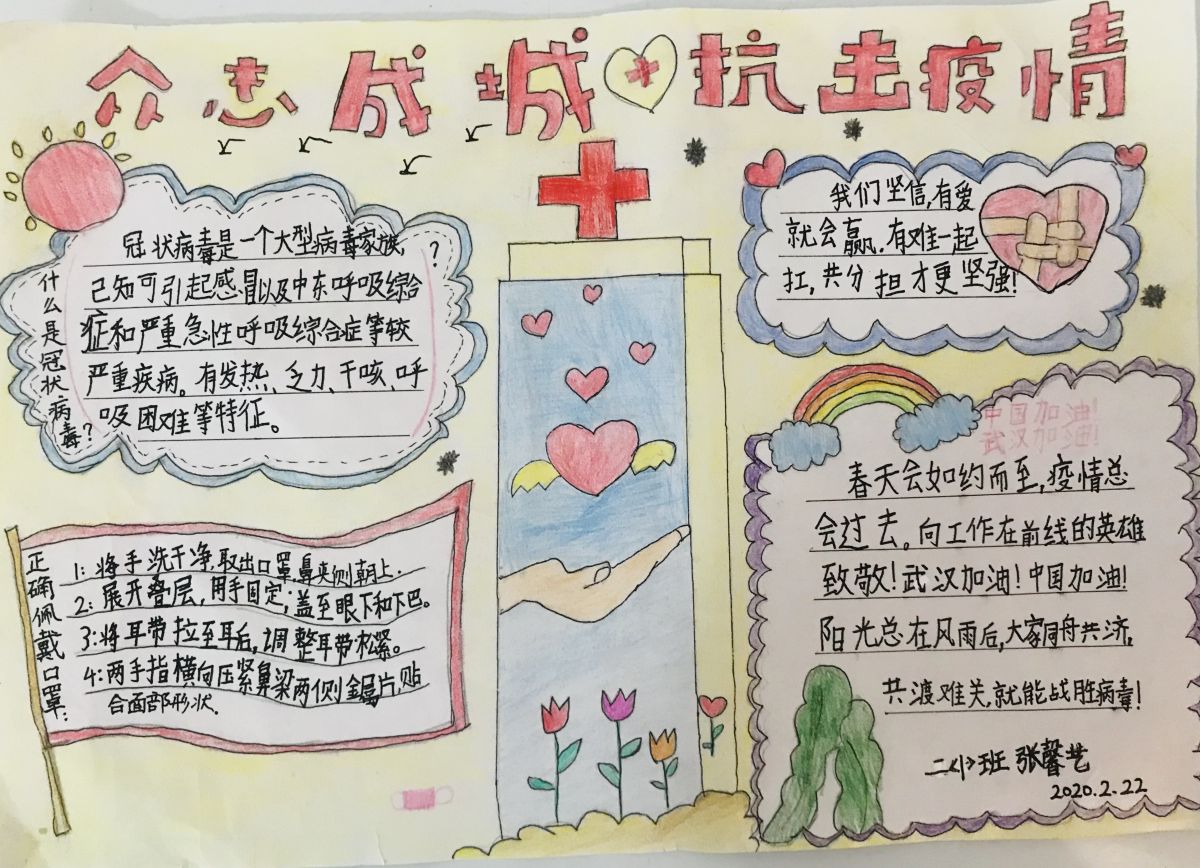 众志成城 抗击疫情
什么是冠状病毒?
冠状病毒是一个大型病毒家族,
己知可引起感冒以及中东呼吸综合
症和严重急性呼吸综合症等较
严重疾病。有发热、乏力、干咳、呼
吸困难等特征。
?
我们坚信,有爱
就会赢,有难一起
扛,共分担才更坚强!
正确佩戴口罩:
1:将手洗干净,取出口罩,鼻夹侧朝上.
2:展开叠层,用手固定;盖至眼下和下巴。
3:将耳带拉至耳后,调整耳带松紧。
4:两手指横向压紧鼻梁两侧金属片,贴
合面部形状.
中国加油!
武汉加油!
春天会如约而至,疫情总
会过去。向工作在前线的英雄
致敬!武汉加油!中国加油!
阳光总在风雨后,大家同舟共济,
共渡难关,就能战胜病毒!
二<1>班 张馨艺
2020.2.22